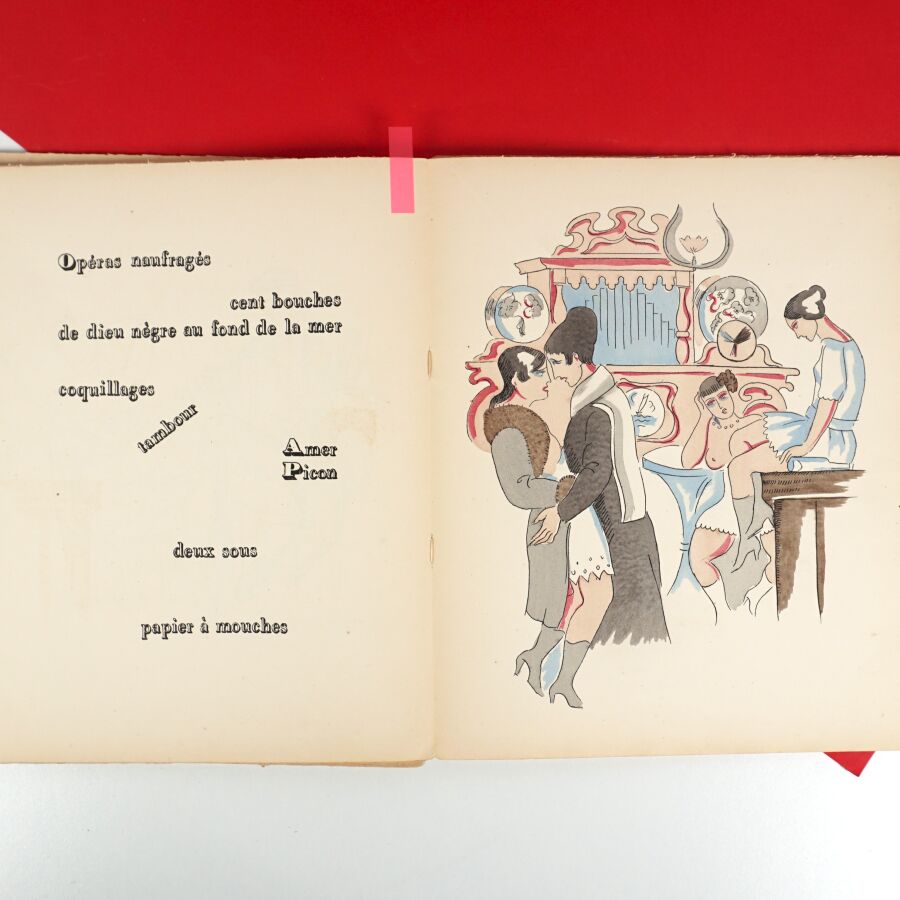 Opéras naufragés
cent bouches
de dieu nègre au fond de la mer
coquillages
tambour
Amer
Picon
deux sous
papier à mouches